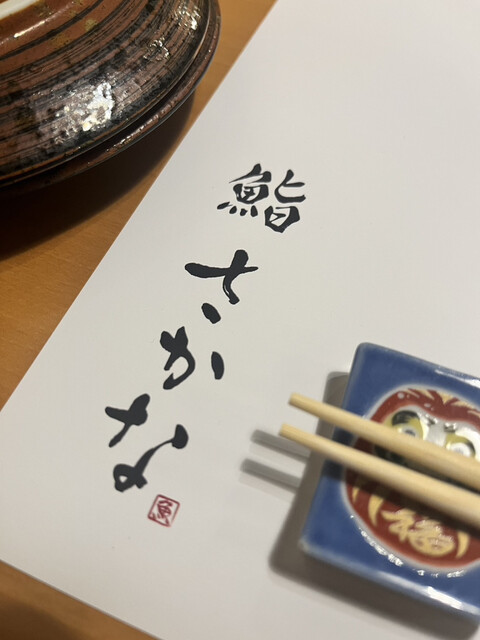 鮨
さかな
魚
福